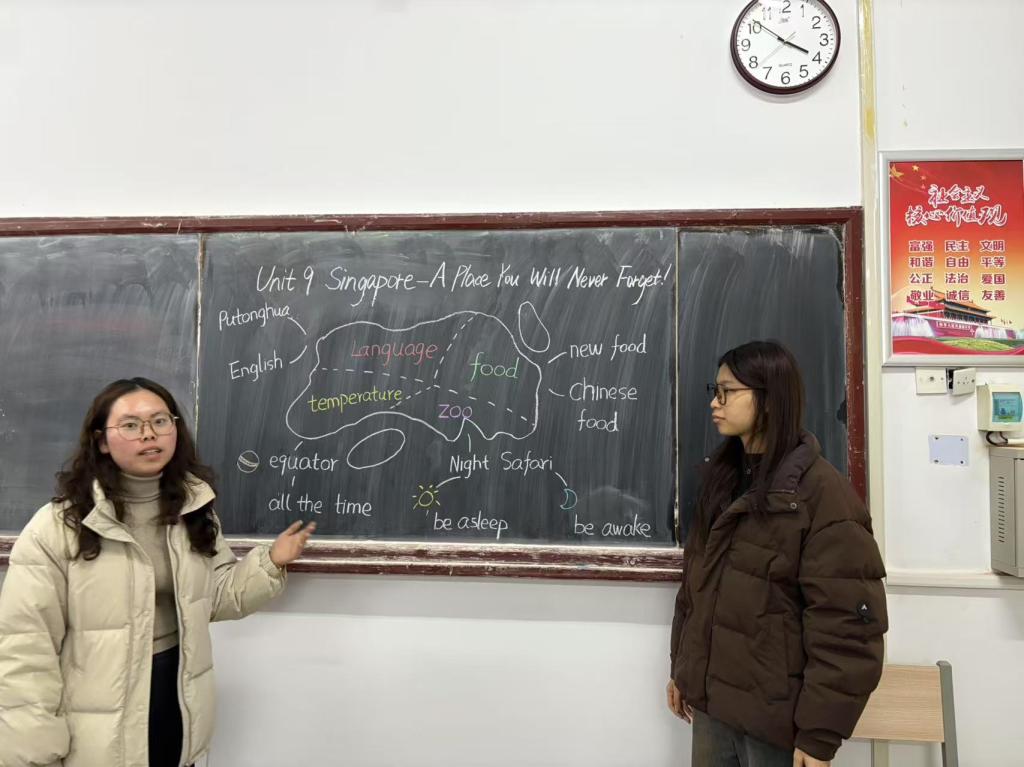 11 12 1
10 2
9 3
8 4
7 6 5
QUARTZ
社会主义
核心价值观
富强 民主 文明
和谐 自由 平等
公正 法治 爱国
敬业 诚信 友善
Unit 9 Singapore—A Place You Will Never Forget!
Putonghua
English
Language
food
temperature
zoo
new food
Chinese
food
equator
all the time
Night Safari
be asleep
be awake